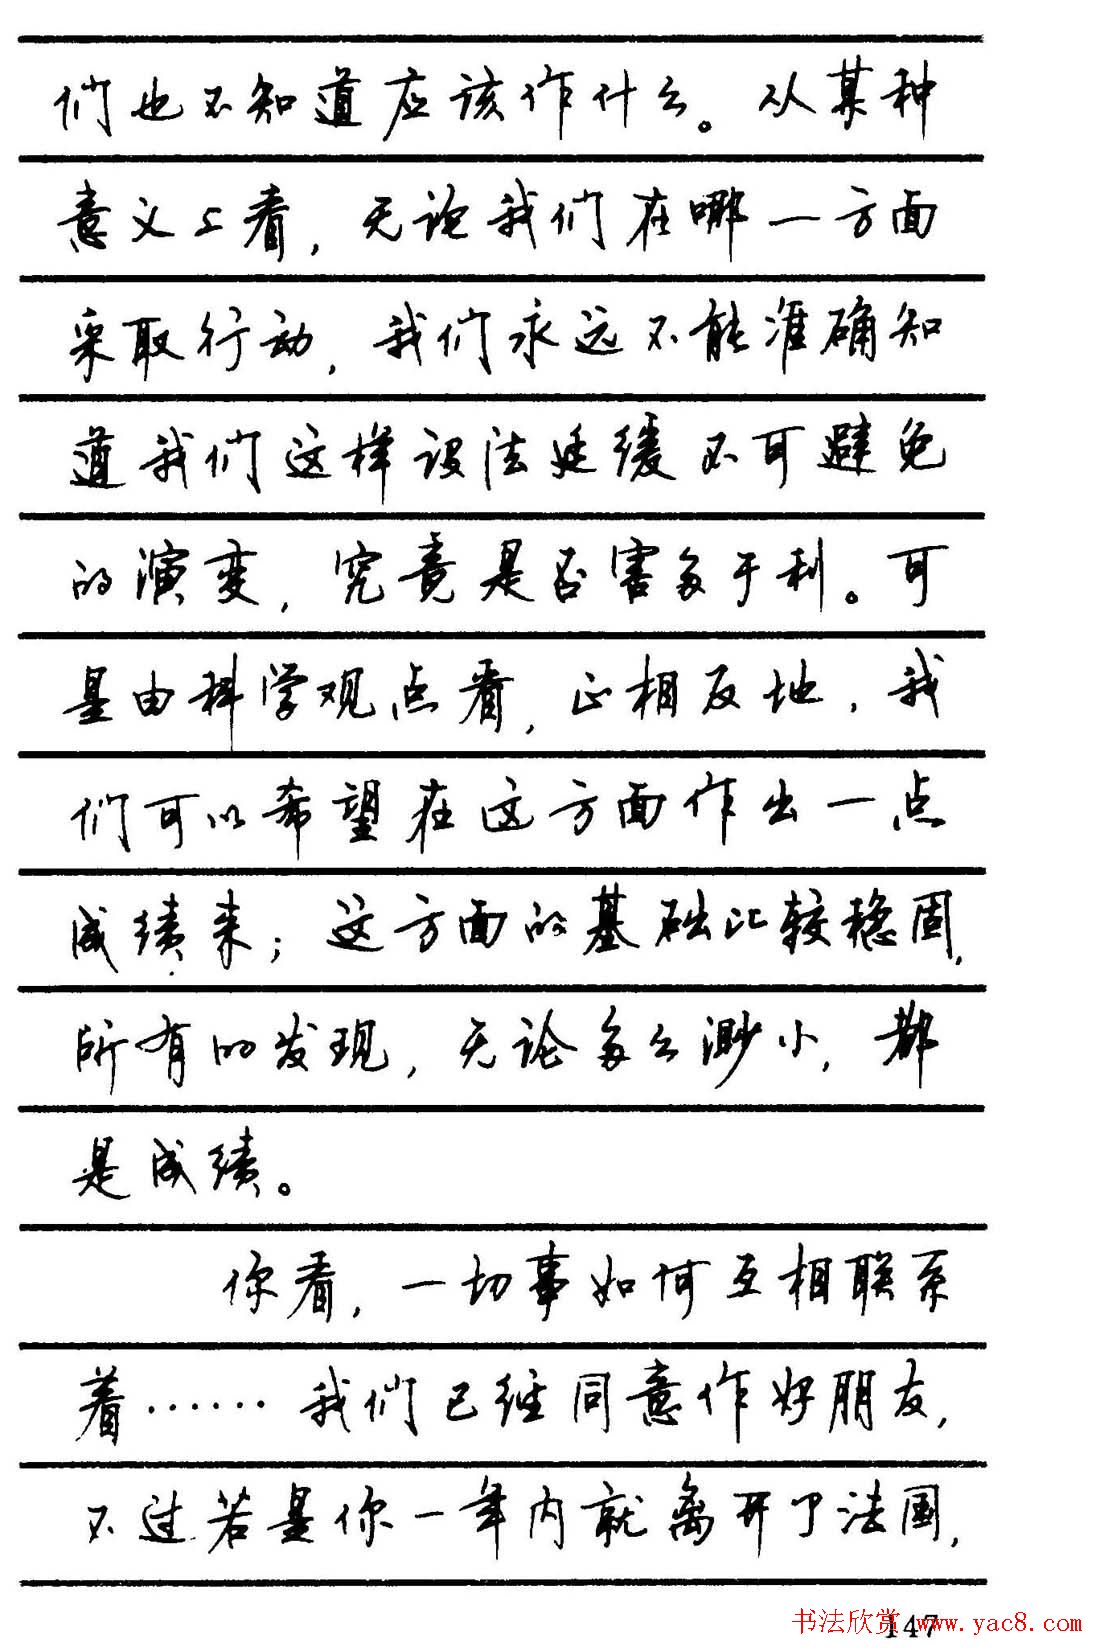 们也不知道应该作什么。从某种
意义上看，无论我们在哪一方面
采取行动，我们永远不能准确知
道我们这样设法延缓不可避免
的演变，究竟是否害多于利。可
是由科学观点看，正相反地，我
们可以希望在这方面作出一点
成绩来；这方面的基础比较稳固，
所有的发现，无论多么渺小，都
是成绩。
你看，一切事如何互相联系
着……我们已经同意作好朋友，
不过若是你一年内就离开了法国，
147
书法欣赏 www.yac8.com